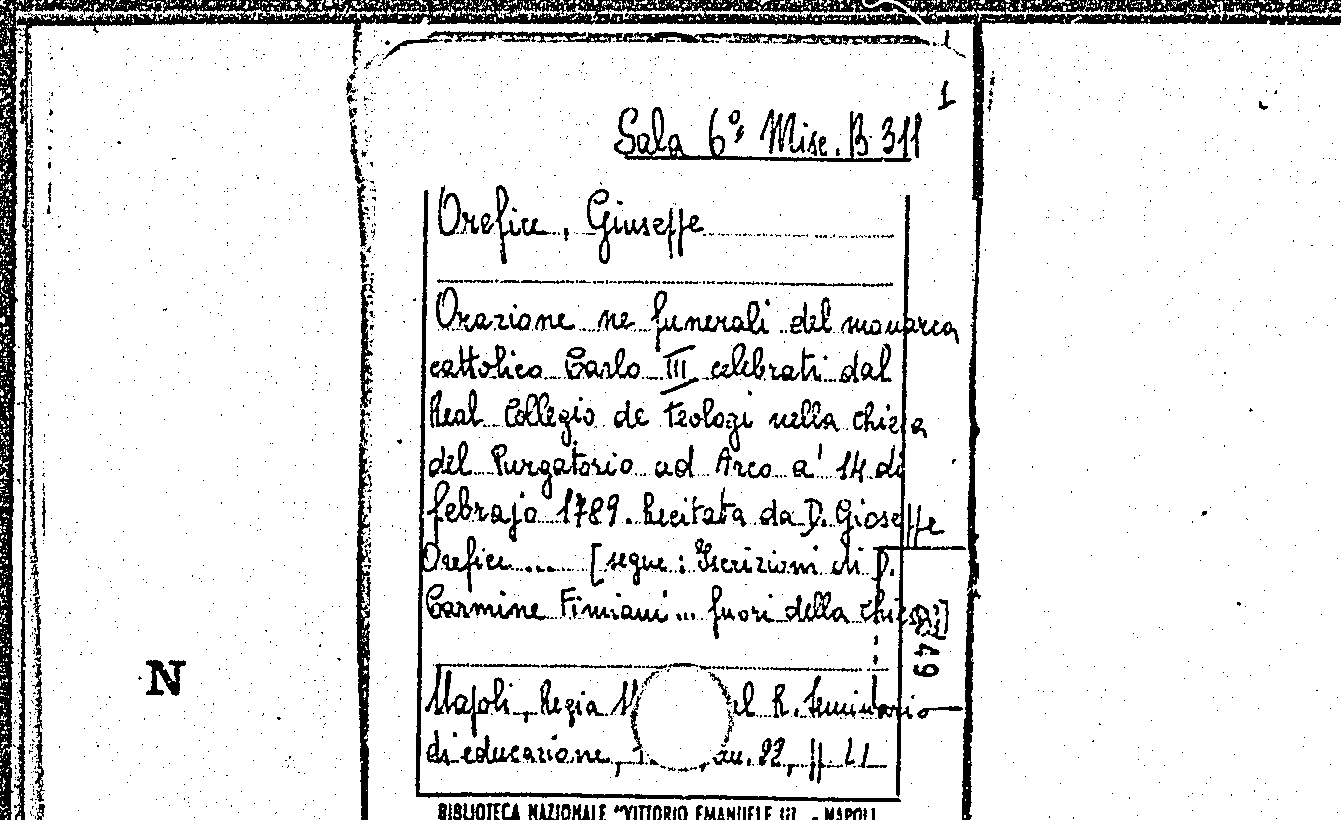 1
Sala 6ª Misc. B 311
Orefice, Giuseppe
Orazione ne funerali del monarca
cattolico Carlo III celebrati dal
Real Collegio de Teologi nella chiesa
del Purgatorio ad Arco a' 14 di
febrajo 1789. Recitata da D. Gioseffe
Orefice.... [segue: Iscrizioni di D.
Carmine Fimiani... fuori della chiesa]
N
Napoli, Regia el R. Seminario
di educazione, 22, ff.
BIBLIOTECA NAZIONALE "VITTORIO EMANUELE III - NAPOLI